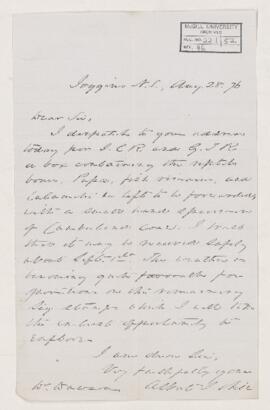 McGILL UNIVERSITY
ARCHIVES
ACC. NO. 22 / 52
REF. 46
Joggins N.S., Aug 28. 76
Dear Sir,
I despatch to your address
today per I.C.R. and G.T.R.
a box containing the reptile
bones, Pupa, fish remains, and
Calamite left to be forwarded
with a small hand specimen
of Cone. I trust
that it may be received safely
about Septr. 1st. The weather is
becoming quite favourable for
operations on the remaining
Sig. stumps which I will take
the earliest opportunity to
explore.
I am dear Sir,
Very faithfully yours
Dr. Dawson Albert J. Hill